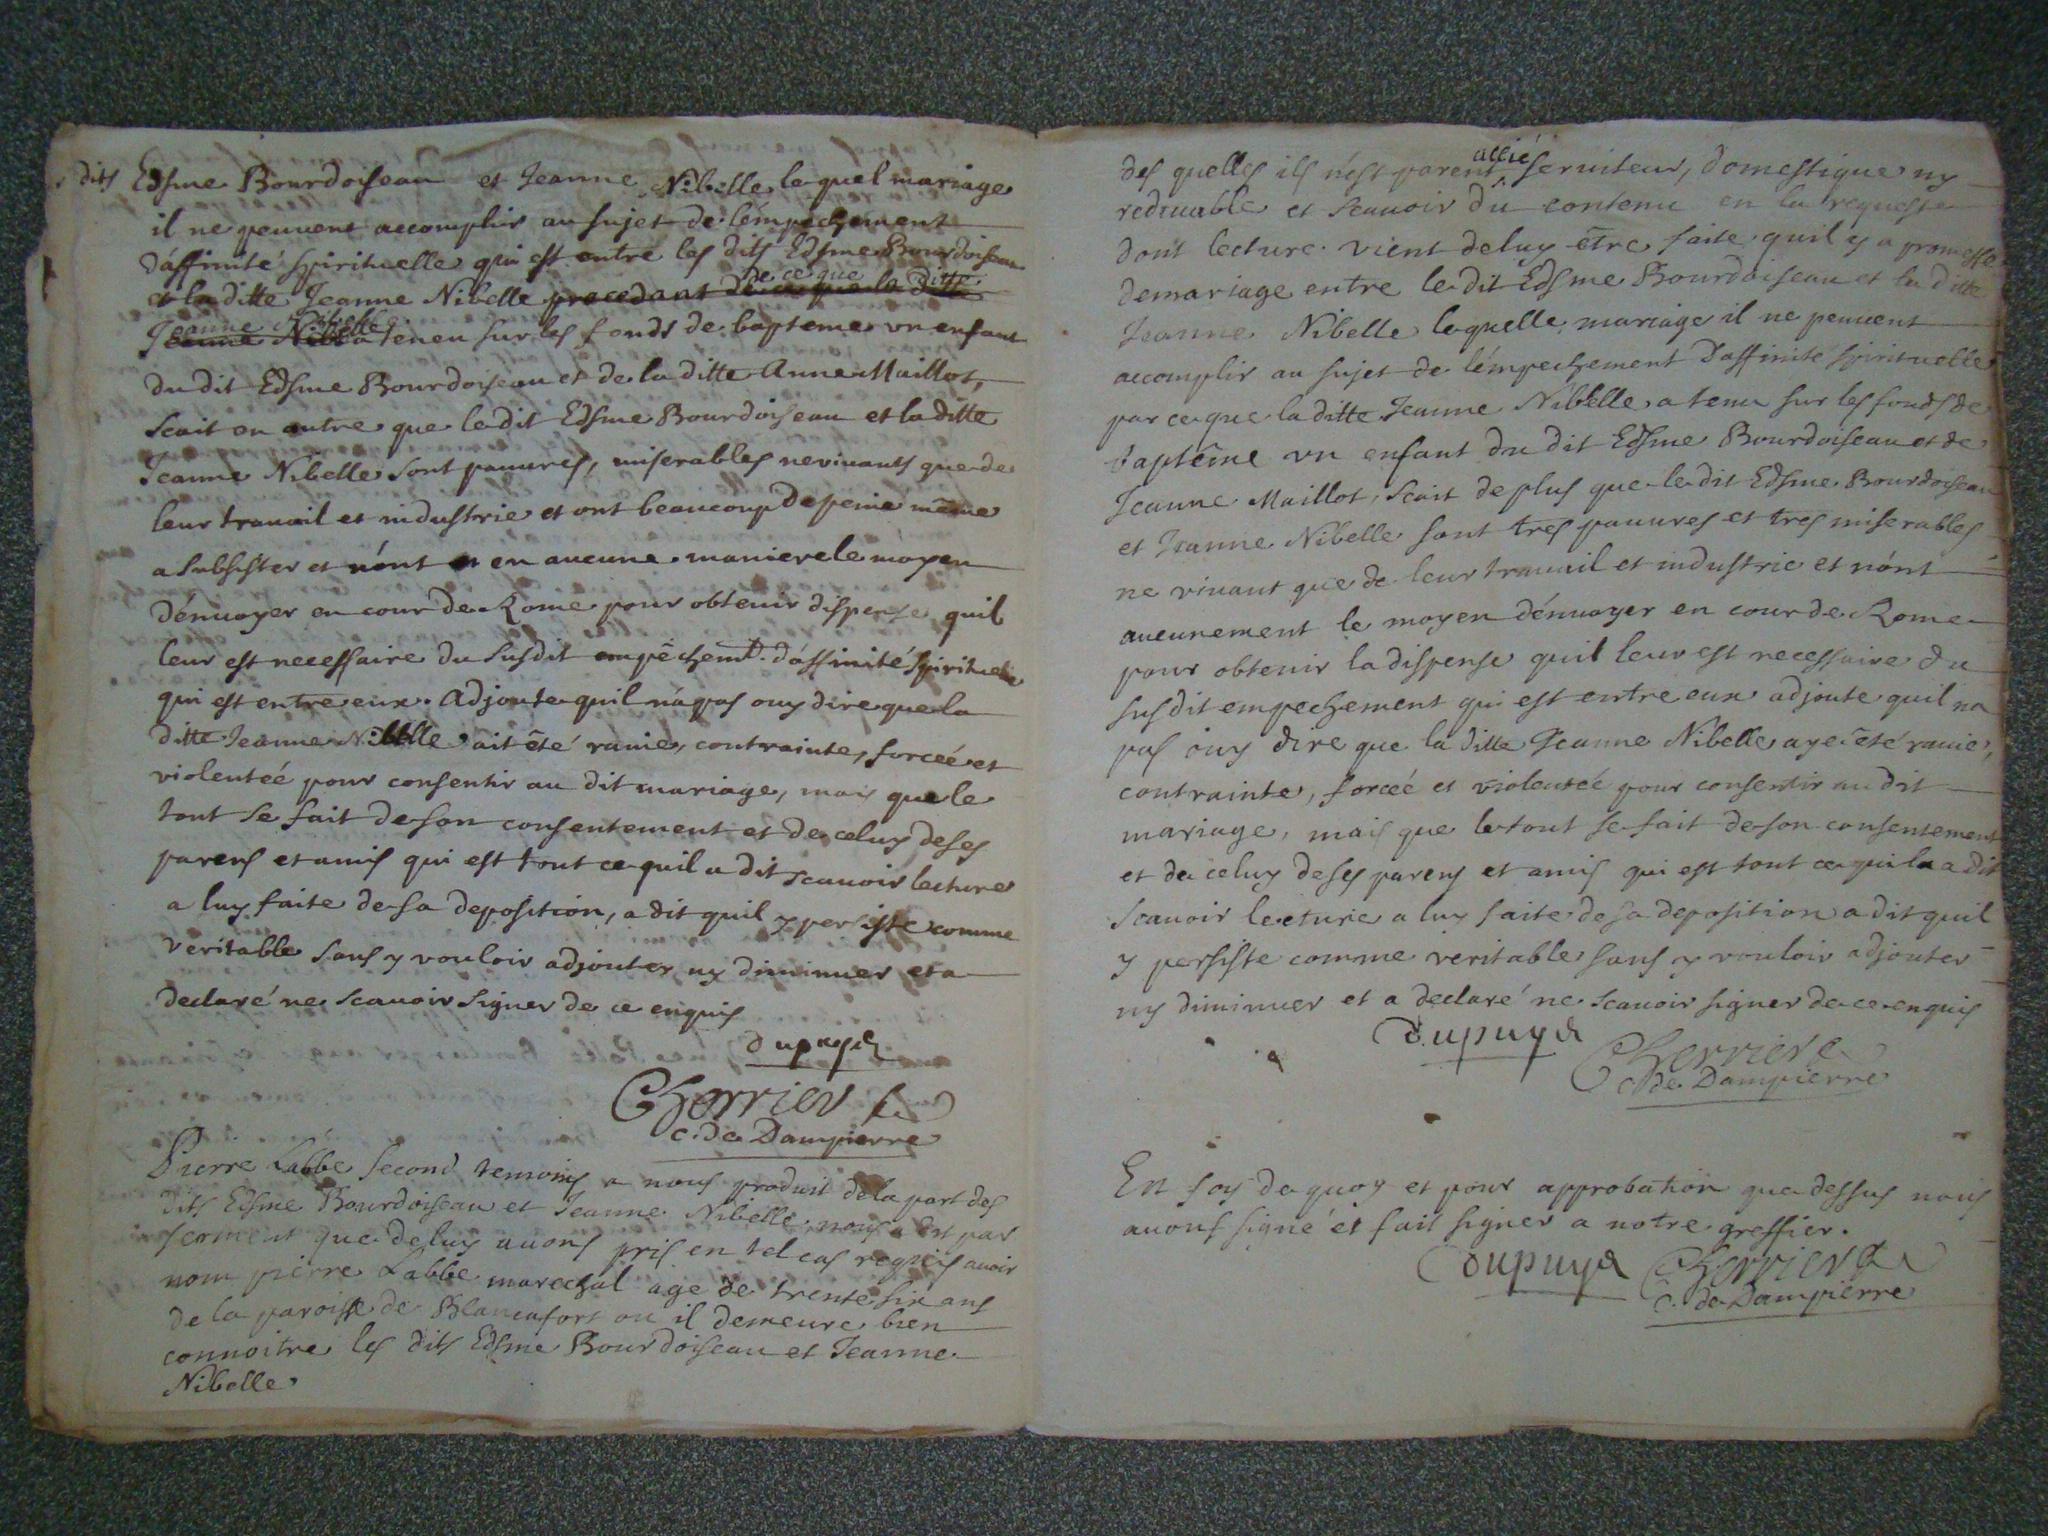 dits Edsme Bourdoiseau et Jeanne Nibelle lequel mariage
il ne peuvent accomplir au sujet de l'émpechement
d'affinité spirituelle qui est entre les dits Edsme Bourdoiseau
et la ditte Jeanne Nibelle procedant de ce que la ditte
de ce que ditte
Jeanne Nibelle
Jeanne Nibelle a teneu sur les fonds de bapteme vn enfant
du dit Edsme Bourdoiseau et de la ditte Anne Maillot,
scait en outre que le dit Edsme Bourdoiseau et la ditte
Jeanne Nibelle sont pauures, miserables ne viuants que de
leur trauail et industrie et ont beaucoup de peine même
a subsister et n'ónt en aucune maniere le moyen
d'énuoyer en cour de Rome pour obtenir dispense quil
leur est necessaire du susdit empêchemt. d'affinité spirituelle
qui est entre eux. Adjoute quil n'a pas ouy dire que la
ditte Jeanne Nibelle ait été rauie, contrainte, forceé et
violenteé pour consentir au dit mariage, mais que le
tout se fait de son consentement et de celuy de ses
parens et amis qui est tout ce quil a dit scauoir lecture
a luy faite de sa deposition, a dit quil y persiste comme
veritable sans y vouloir adjouter ny diminuer et a
declaré ne scauoir signer de ce enquis
dupuyd
Cherrier
c. de Dampierre
Pierre Labbe second temoins a nous produit de la part des
dits Edsme Bourdoiseau et Jeanne Nibelle nous a dit par
serment que de luy auons pris en tel cas requis auoir
nom pierre Labbe marechal age de trente six ans
de la paroisse de Blancafort ou il demeure bien
connoitre les dits Edsme Bourdoiseau et Jeanne
Nibelle
des quelles ils n'est parent allié seruiteur, domestique ny
redeuable et scauoir du contenu en la requeste
dont lecture vient de luy être faite quil y a promesse
de mariage entre le dit Edsme Bourdoiseau et la ditte
Jeanne Nibelle laquelle mariage il ne peuuent
accomplir au sujet de l'émpechement d'affinité spirituelle
par ce que la ditte Jeanne Nibelle a tenu sur les fonds de
baptême vn enfant du dit Edsme Bourdoiseau et de
Jeanne Maillot, scait de plus que le dit Edsme Bourdoiseau
et Jeanne Nibelle sont tres pauures et tres miserables
ne viuant que de leur trauail et industrie et n'ónt
aucunement le moyen d'énuoyer en cour de Rome
pour obtenir la dispense quil leur est necessaire du
susdit empechement qui est entre eux adjoute quil na
pas ouy dire que la ditte Jeanne Nibelle aye été rauie,
contrainte, forceé et violenteé pour consentir au dit
mariage, mais que le tout se fait de son consentement
et de celuy de ses parens et amis qui est tout ce quila a dit
scauoir lecture a luy faite de sa deposition a dit quil
y persiste comme veritable sans y vouloir adjouter
ny diminuer et a declaré ne scauoir signer de ce enquis
dupuyd
Cherrier
c. de Dampierre
En foy de quoy et pour approbation que dessus nous
auons signé et fait signer a notre greffier.
dupuyd Cherrier
c. de Dampierre